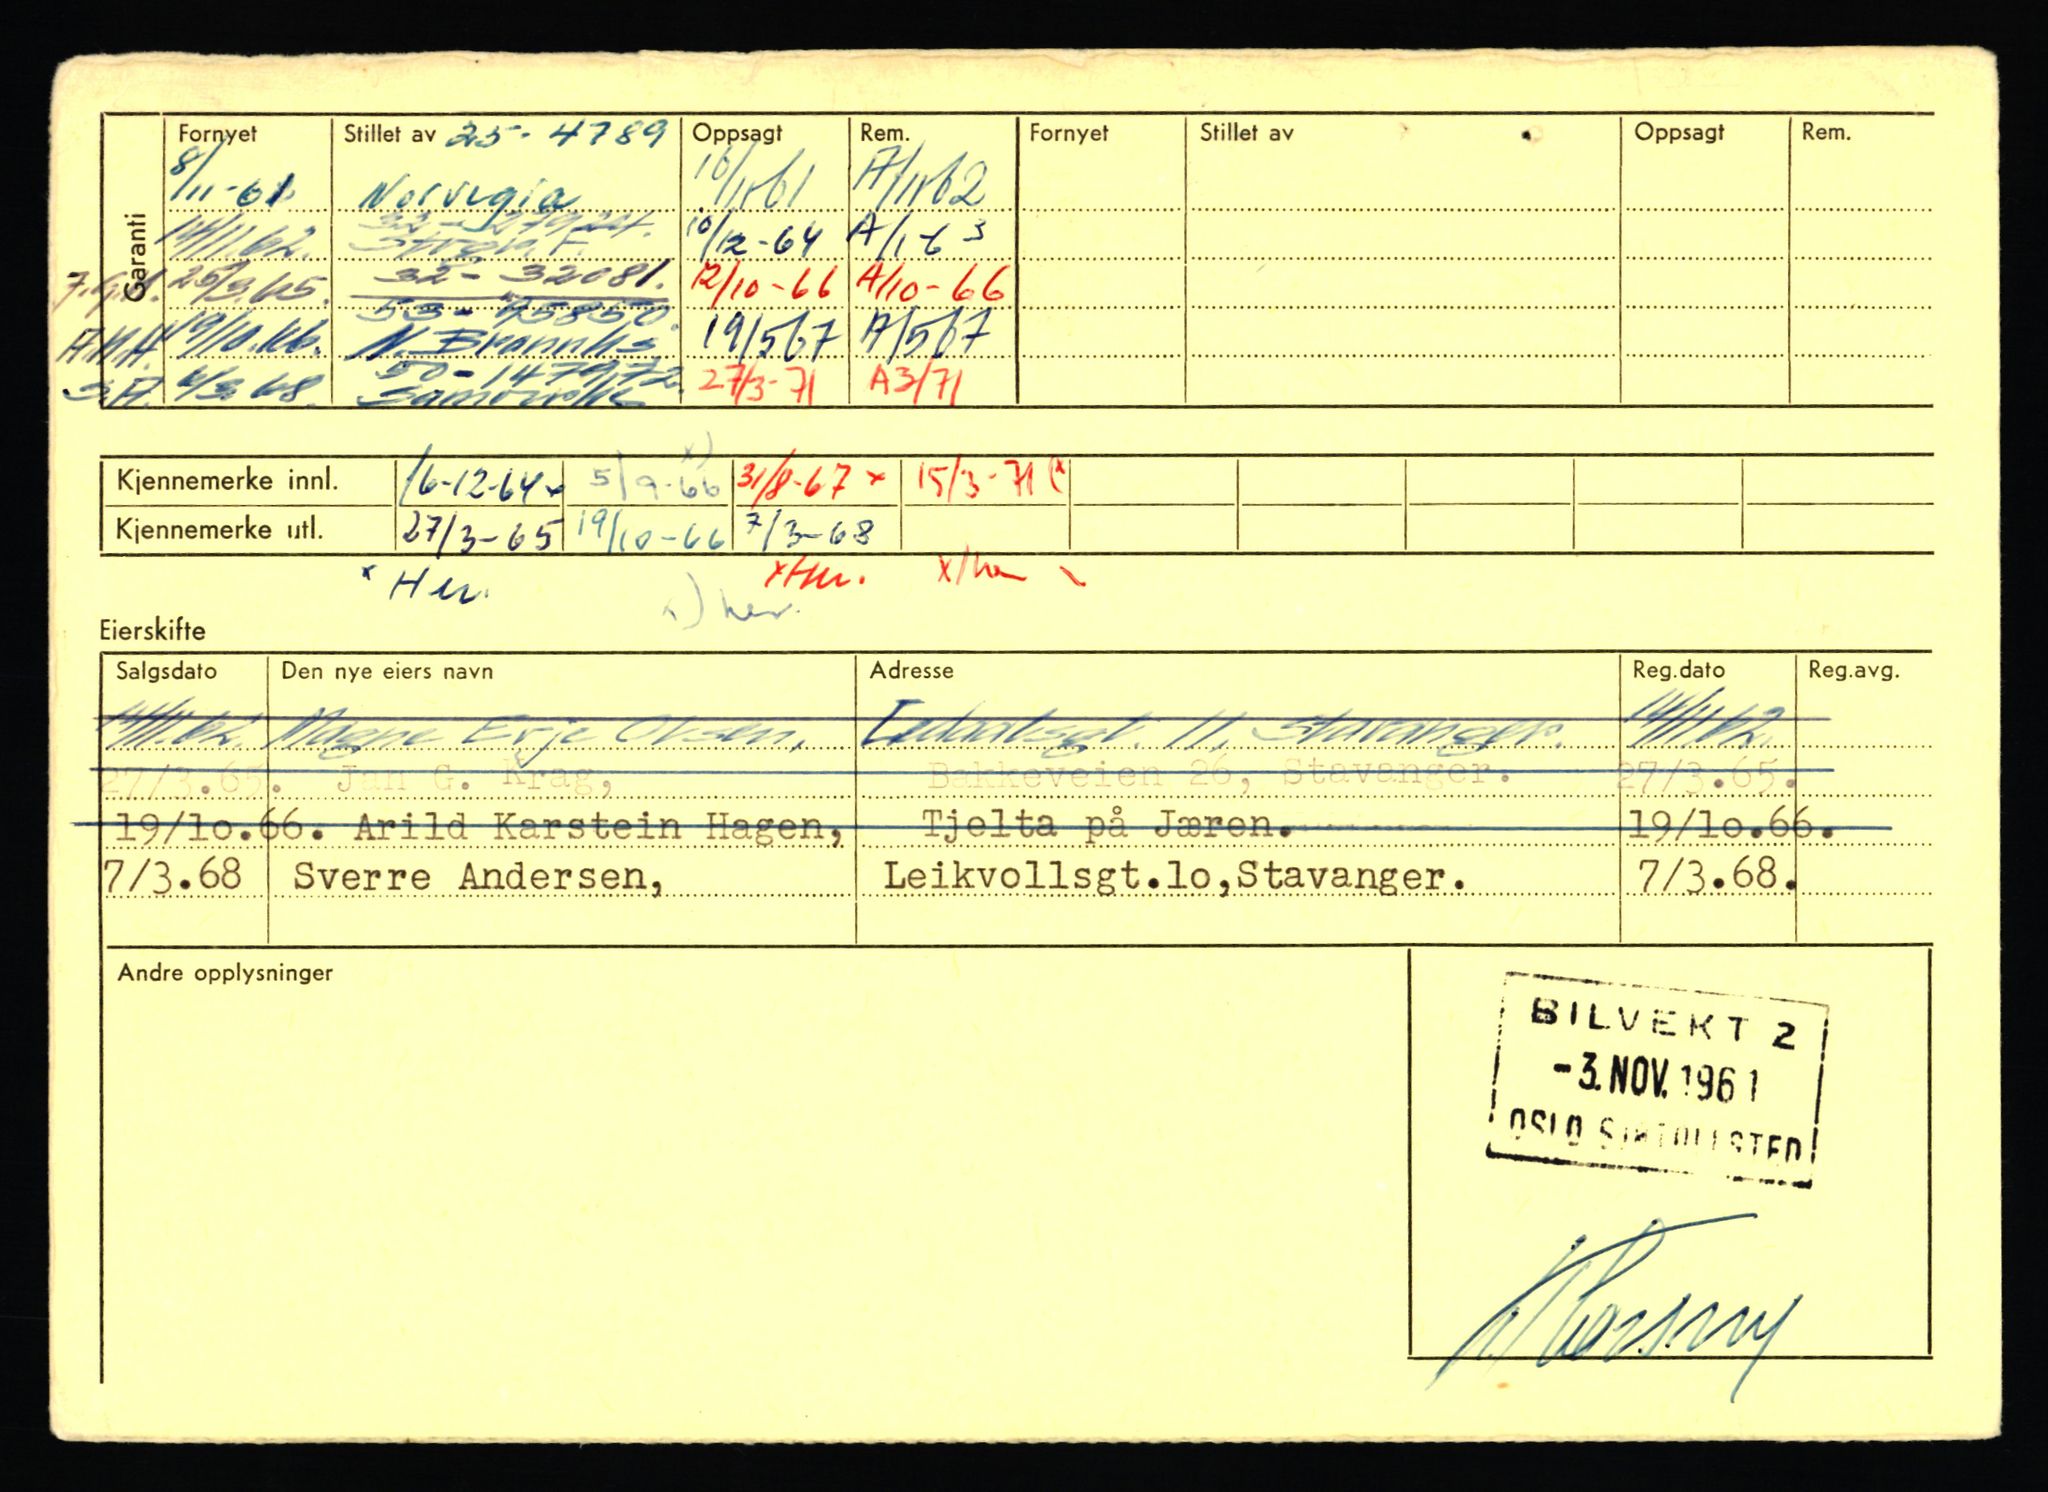 Garanti
Fornyet Stillet av 25-4789 Oppsagt Rem. Fornyet Stillet av Oppsagt Rem.
8/11-61 Norvegia 16/11-61 A/11-62
14/11.62. 10/12-64 A/1-63
25/3.65. 32-32081. 12/10-66 A/10-66
53-45850.
A.M.H. 19/10.66. 19/5-67 A/5-67
50-147972.
S.A. 6/3.68. 27/3-71 A3/71
Kjennemerke innl. 16-12-64 x 5/9-66 x) 31/8-67 x 15/3-71 (x
Kjennemerke utl. 27/3-65 19/10-66 7/3-68
x Her. x) her. x Her. x/her
Eierskifte
Salgsdato Den nye eiers navn Adresse Reg.dato Reg.avg.
14/11.62. Magne Olsen, 11, Stavanger. 14/11.62.
27/3.65. Jan G. Krag, Bakkeveien 26, Stavanger. 27/3.65.
19/lo.66. Arild Karstein Hagen, Tjelta på Jæren. 19/lo.66.
7/3.68 Sverre Andersen, Leikvollsgt.lo,Stavanger. 7/3.68.
Andre opplysninger
BILVEKT 2
-3. NOV. 1961
OSLO